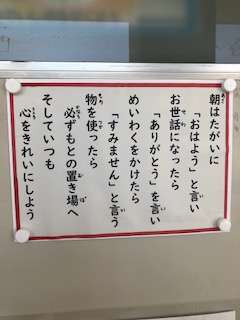 朝はたがいに
「おはよう」と言い
お世話になったら
「ありがとう」を言い
めいわくをかけたら
「すみません」と言う
物を使ったら
必ずもとの置き場へ
そしていつも
心をきれいにしよう